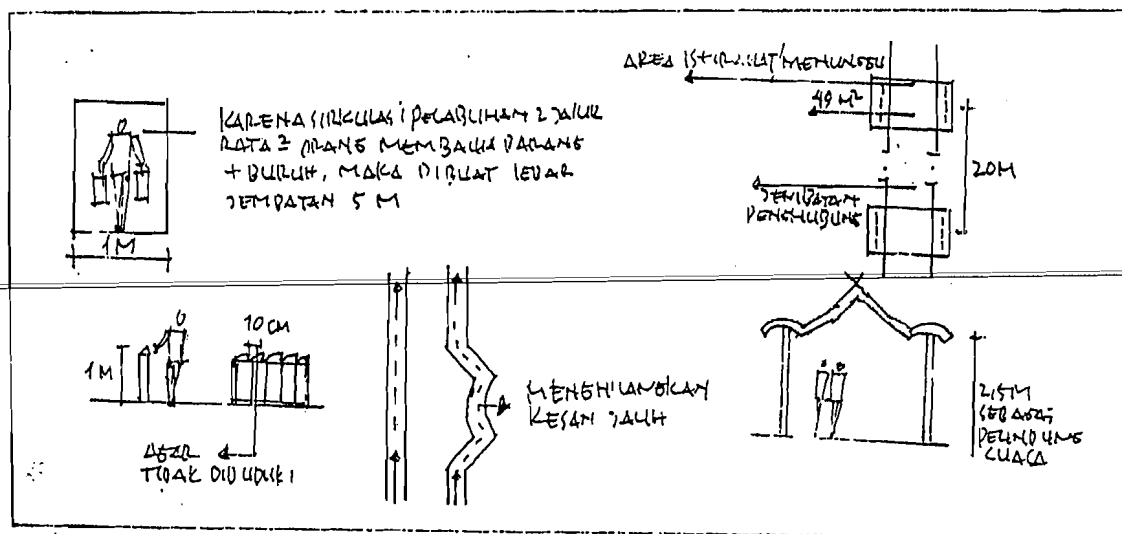 KARENA SIRKULASI PELABUHAN 2 JALUR
RATA² ORANG MEMBAWA BARANG
+ BURUH, MAKA DIBUAT LEBAR
JEMBATAN 5 M
1 M
AREA ISTIRAHAT/MENUNGGU
49 M²
20M
JEMBATAN
PENGHUBUNG
10 CM
1 M
AGAR
TIDAK DIDUDUKI
MENGHILANGKAN
KESAN JAUH
2,5M
SEBAGAI
PELINDUNG
CUACA